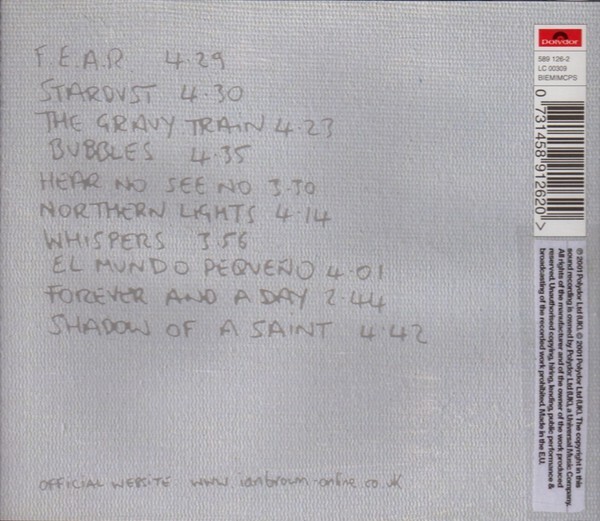 F.E.A.R 4.29
STARDUST 4.30
THE GRAVY TRAIN 4.23
BUBBLES 4.35
HEAR NO SEE NO 3.30
NORTHERN LIGHTS 4.14
WHISPERS 3.56
EL MUNDO PEQUEÑO 4.01
FOREVER AND A DAY 2.44
SHADOW OF A SAINT 4.42
OFFICIAL WEBSITE www.ianbrown-online.co.uk
Polydor
589 126-2
LC 00309
BIEM/MCPS
0 731458 912620 >
℗ 2001 Polydor Ltd (UK). © 2001 Polydor Ltd (UK). The copyright in this
sound recording is owned by Polydor Ltd (UK), a Universal Music Company.
All rights of the manufacturer and of the owner of the work produced
reserved. Unauthorised copying, hiring, lending, public performance &
broadcasting of the recorded work prohibited. Made in the E.U.